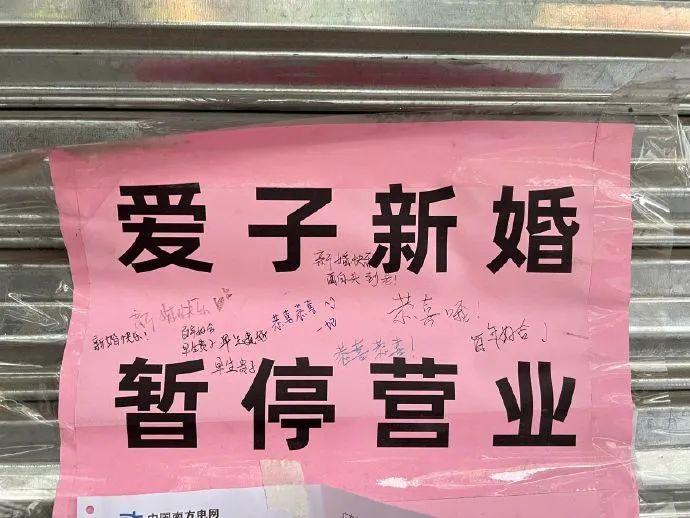 爱子新婚
新婚快乐
白头到老!
新婚快乐
恭喜恭喜
恭喜嗓!
新婚快乐!
百年好合
早生贵子
百年好合
恭喜恭喜!
早生贵子
暂停营业
中国南方电网